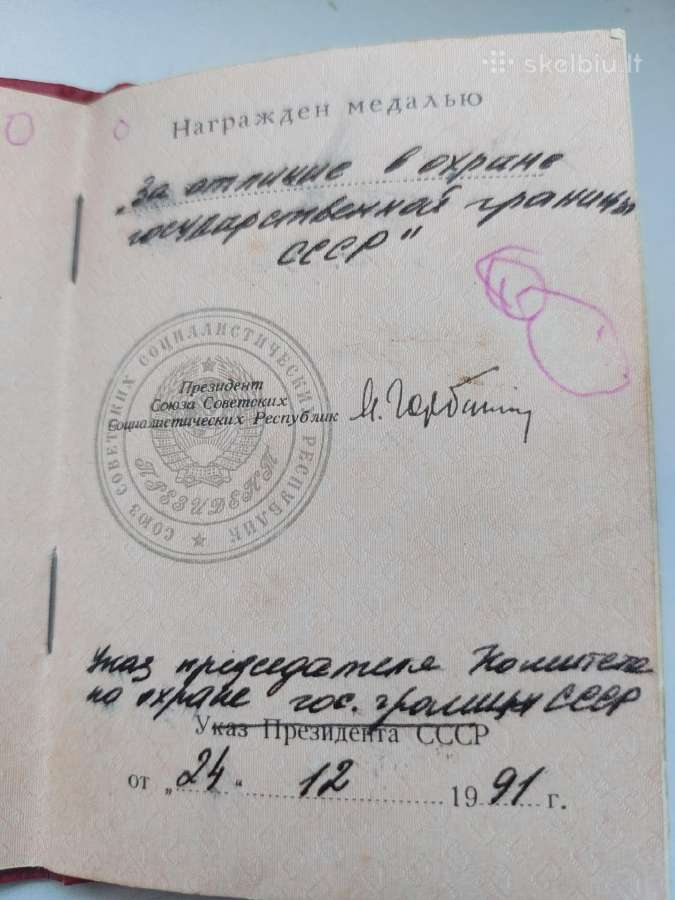 skelbiu.lt
Награжден медалью
„За отличие в охране
государственной границы
СССР"
СОЮЗ СОВЕТСКИХ СОЦИАЛИСТИЧЕСКИХ РЕСПУБЛИК
ПРЕЗИДЕНТ
Президент
Союза Советских
Социалистических Республик
М. Горбачев
Указ председателя Комитета
по охране гос. границы СССР
Указ Президента СССР
от „24“ 12 1991 г.